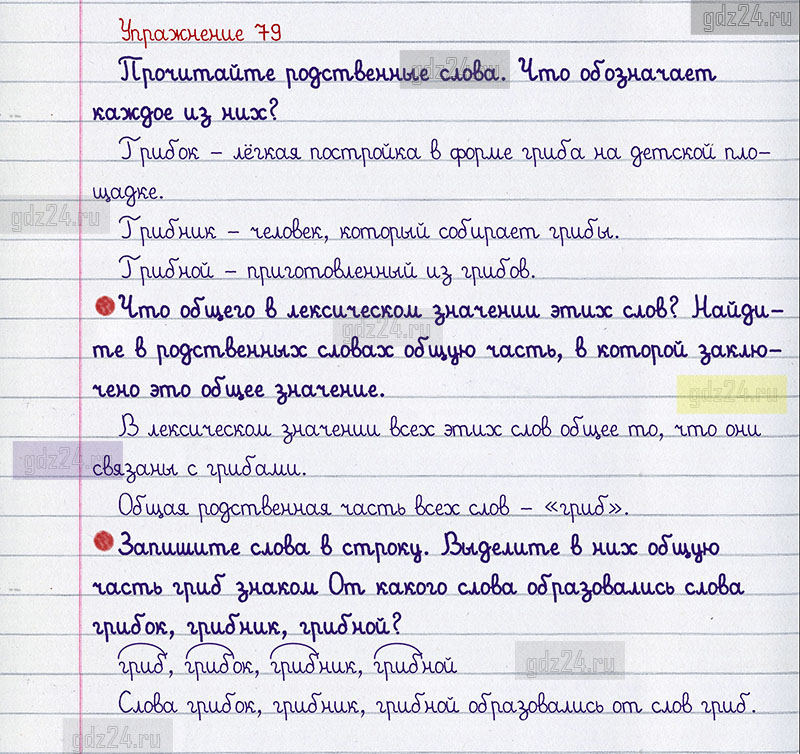 gdz24.ru
Упражнение 79
Прочитайте родственные слова. Что обозначает
gdz24.ru
каждое из них?
Грибок – лёгкая постройка в форме гриба на детской пло-
щадке.
gdz24.ru
Грибник – человек, который собирает грибы.
Грибной – приготовленный из грибов.
Что общего в лексическом значении этих слов? Найди-
gdz24.ru
те в родственных словах общую часть, в которой заклю-
чено это общее значение.
gdz24.ru
В лексическом значении всех этих слов общее то, что они
gdz24.ru
связаны с грибами.
Общая родственная часть всех слов – «гриб».
Запишите слова в строку. Выделите в них общую
часть гриб знаком От какого слова образовались слова
грибок, грибник, грибной?
гриб, грибок, грибник, грибной
gdz24.ru
Слова грибок, грибник, грибной образовались от слов гриб.
gdz24.ru